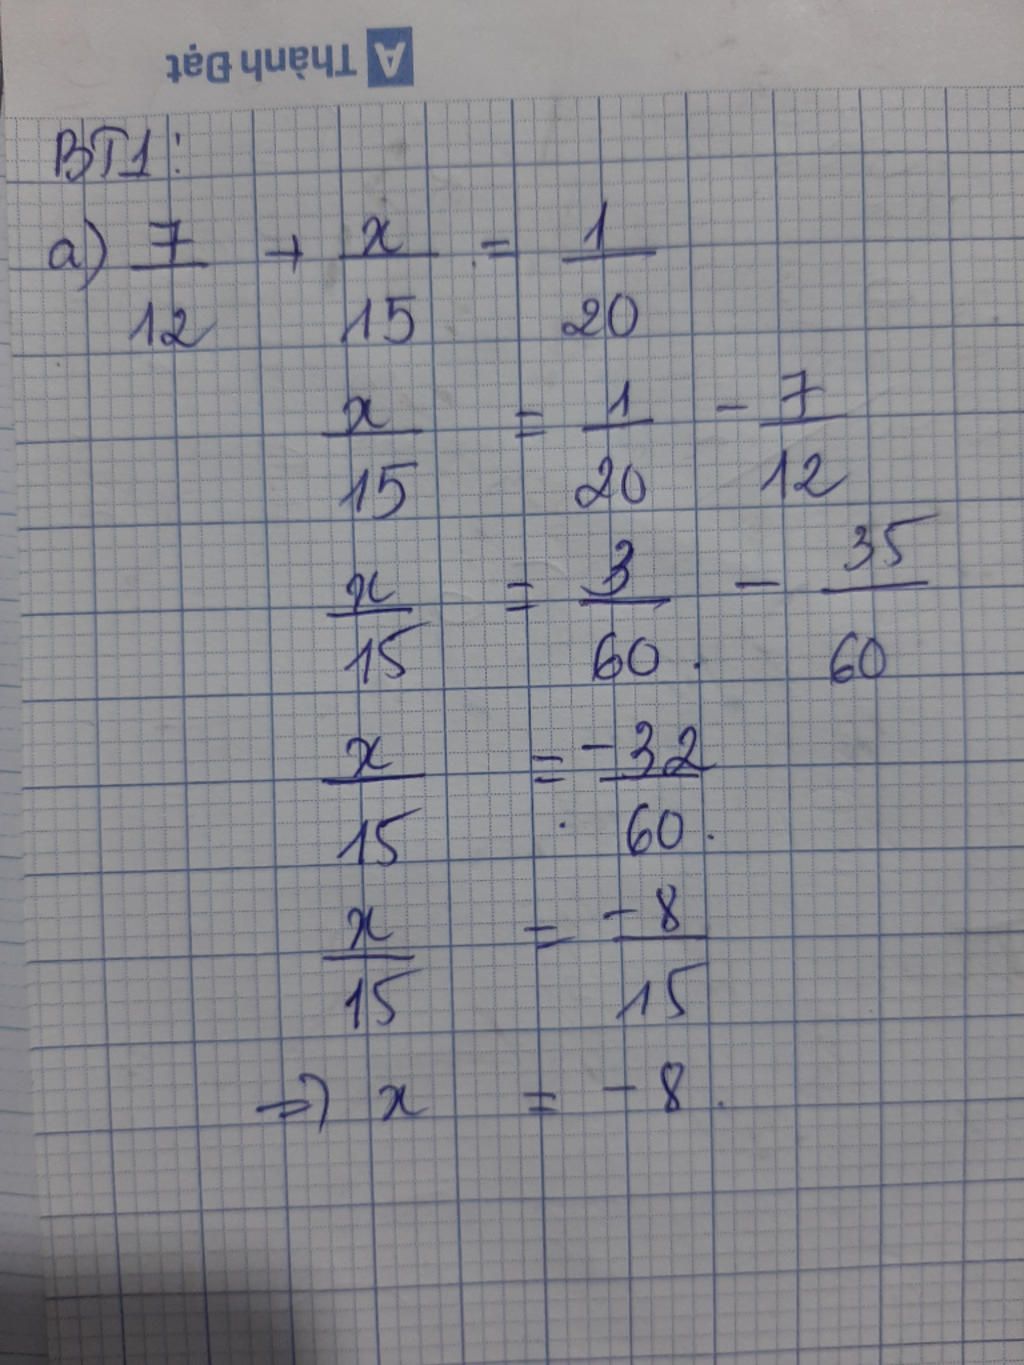 A Thành Đạt
BT1:
a) 7/12 + x/15 = 1/20
x/15 = 1/20 - 7/12
x/15 = 3/60 - 35/60
x/15 = -32/60
x/15 = -8/15
=> x = -8.